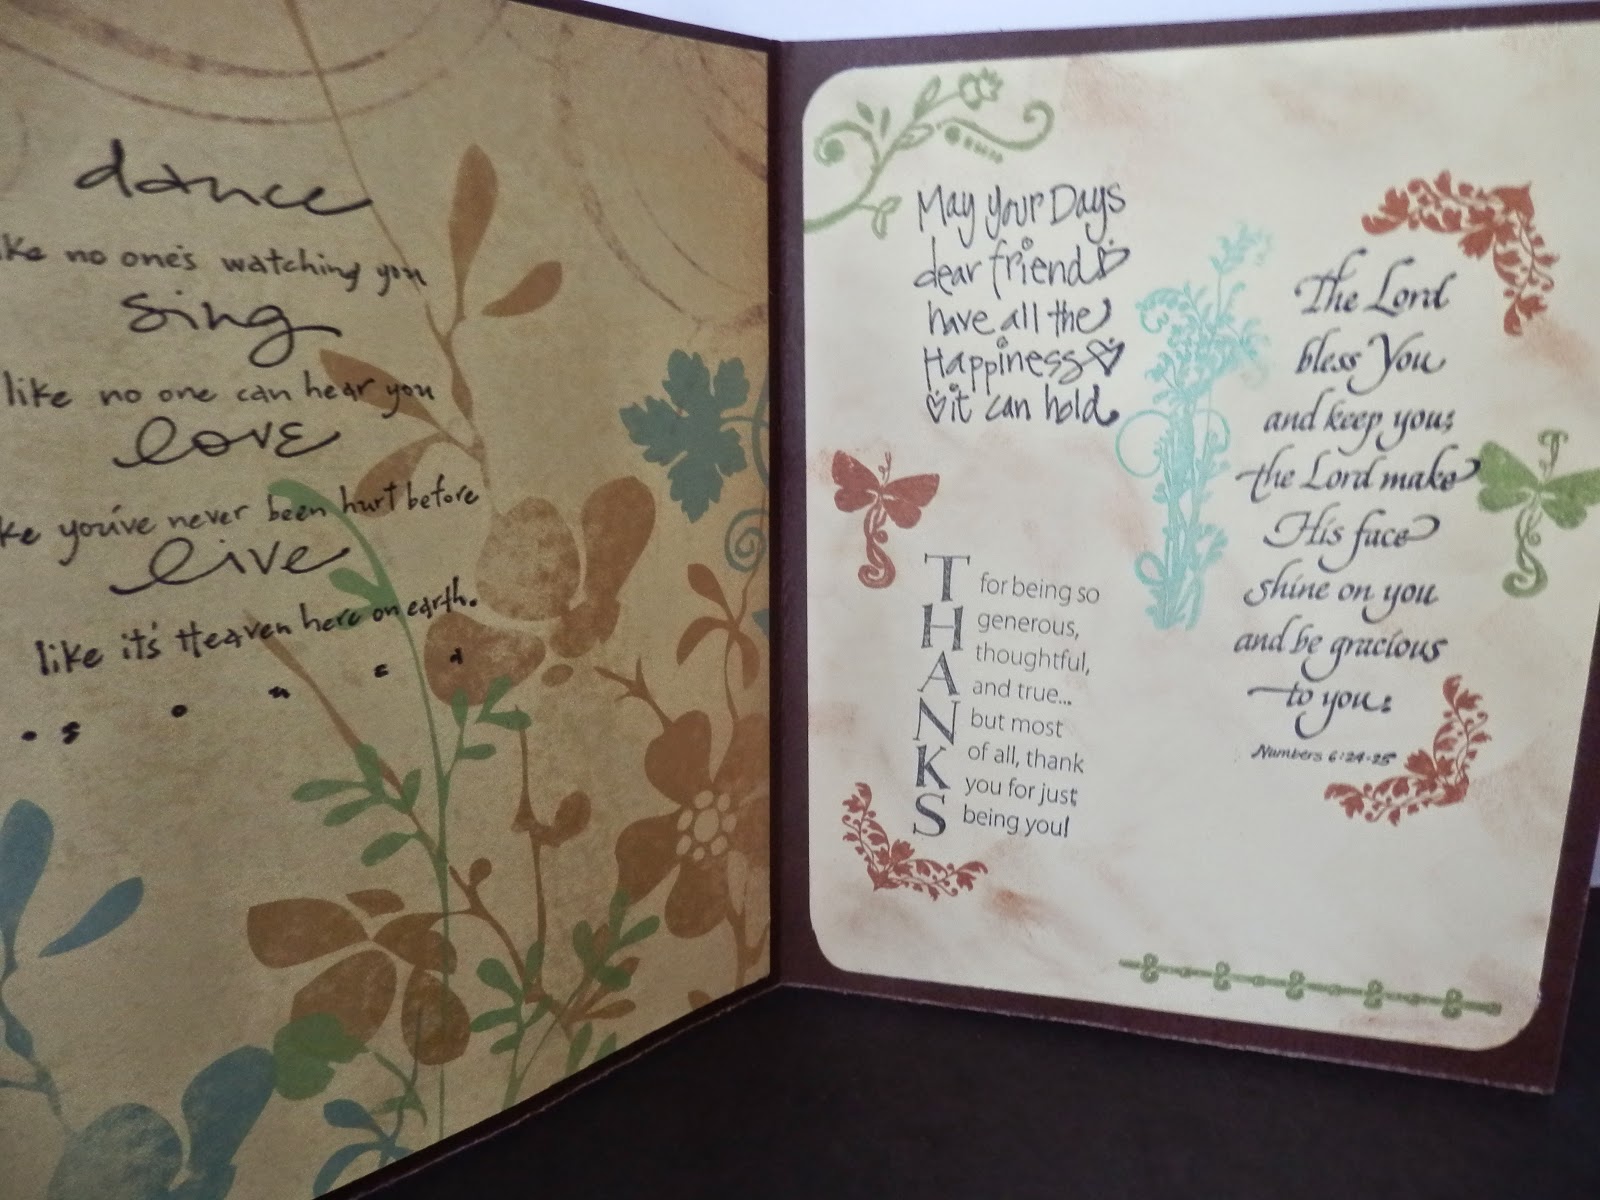 dance
ike no one's watching you
sing
like no one can hear you
love
ke you've never been hurt before
live
like it's Heaven here on earth.
May your Days
dear friend
have all the
Happiness
it can hold.
THANKS
for being so
generous,
thoughtful,
and true...
but most
of all, thank
you for just
being you!
The Lord
bless You
and keep you;
the Lord make
His face
shine on you
and be gracious
to you:
Numbers 6:24-25